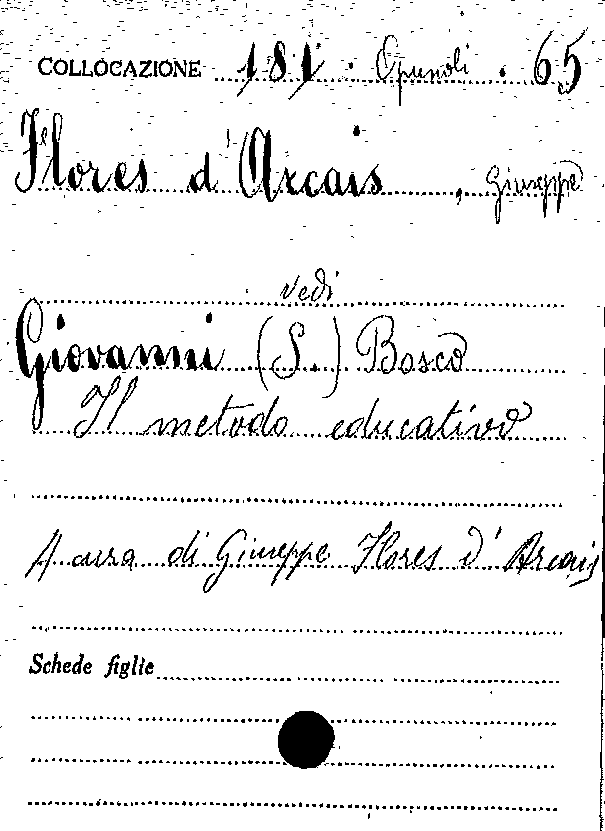 COLLOCAZIONE 181 . Opuscoli . 65
Flores d'Arcais, Giuseppe
vedi
Giovanni (S.) Bosco
Il metodo educativo
A cura di Giuseppe Flores d'Arcais
Schede figlie